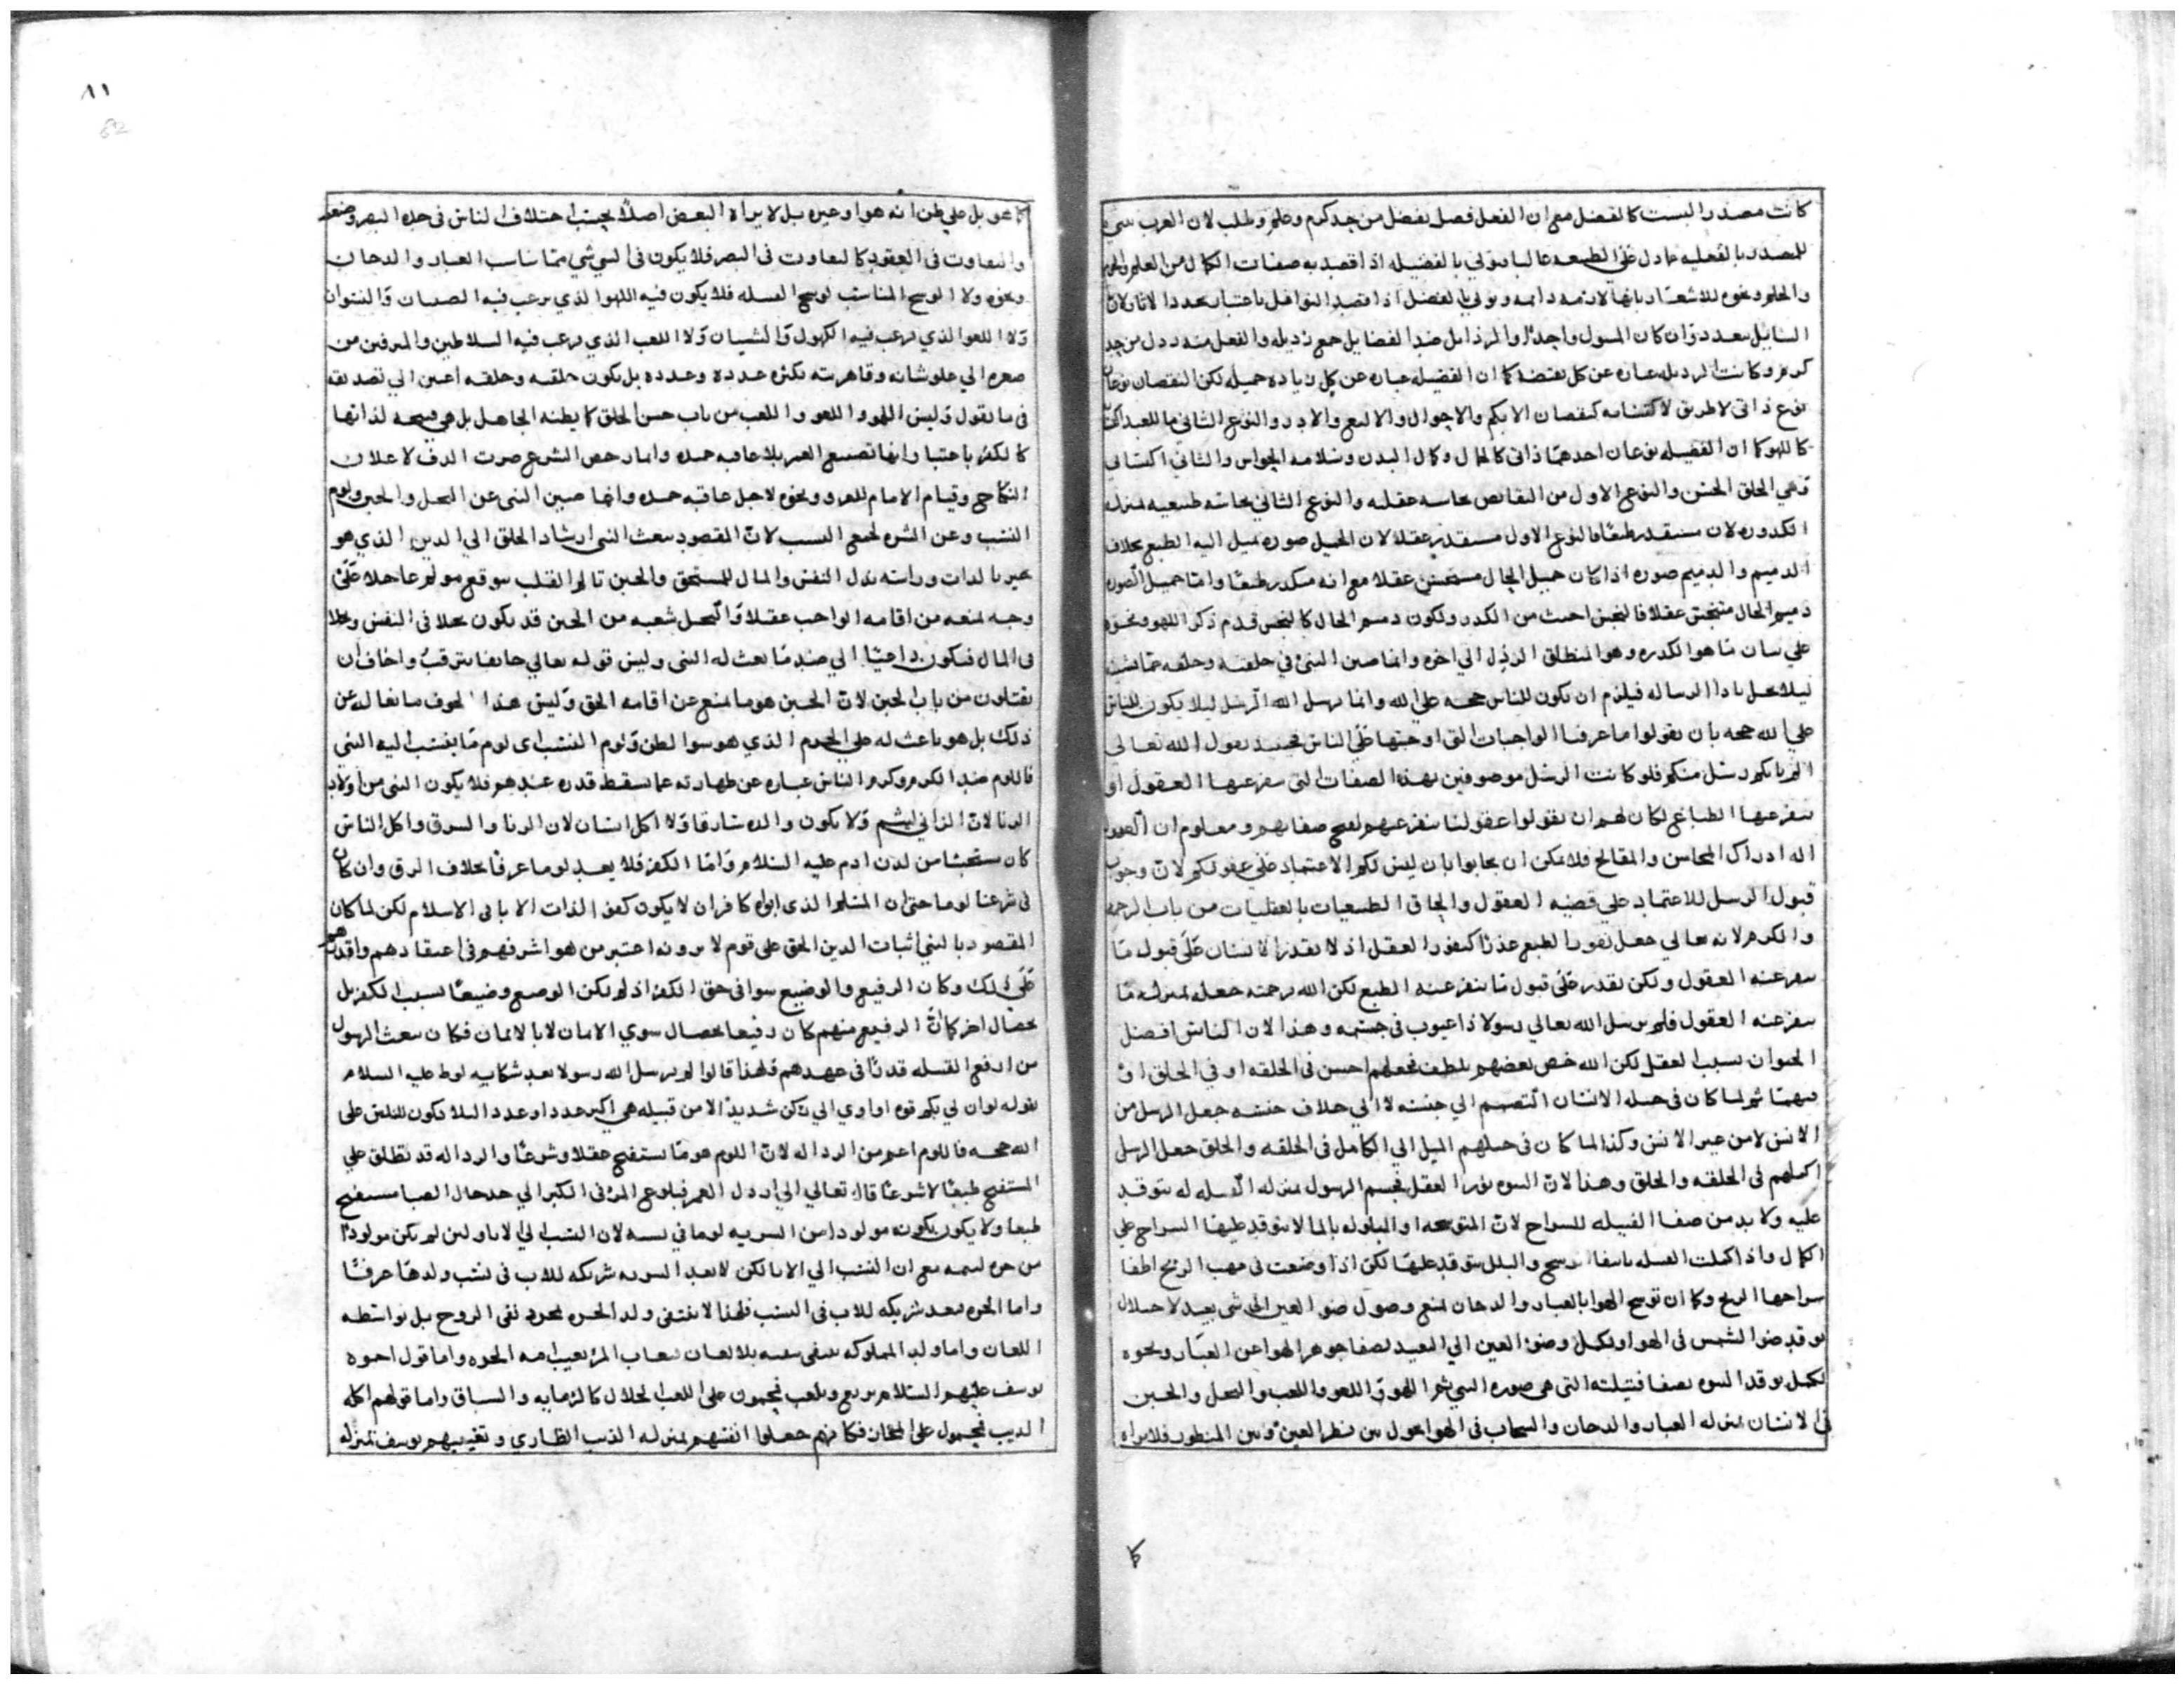 كانت مصدرا ليست كالفضل مع ان الفعل فضل يفضل من حد كرم وعلم وطلب لان العرب
للمصدر بالفعليه مادل على الطبيعه غالبا بالفضيله اذا قصد به صفات الكمال من العلم
والحلم ونحوه للاشعار بانها لازمه دايمه بالفضل اذا قصد النوافل باعتبار تجدد الاثار لان
السايل يتعدد وان كان المسول واحدا والرذايل ضد الفضايل جمع رذيله والفعل منه رذل من حد
كرم وكانت الرذيله عباره عن كل نقيضه كما ان الفضيله عباره عن كل زياده جميله لكن النقصان نوعان
نوع ذاتي لا طريق لاكتسابه كنقصان الابكم والاحول والنوع الثاني ما للعبد
كاللهو كما ان الفضيله نوعان احدهما ذاتي كالجمال وكمال البدن وسلامه الحواس والثاني اكتسابي
وهي الخلق الحسن والنوع الاول من النقايص نجاسه عقليه والنوع الثاني نجاسه طبيعيه بمنزله
الكدوره لان مستقذر طبعا فالنوع الاول مستقذر عقلا لان الجميل صوره يميل اليه الطبع بخلاف
الدميم والدميم صوره اذا كان جميل الحال مستحسن عقلا مع انه مكدر طبعا واما جميل الصوره
دميم الحال متنجس عقلا فالنجس اخبث من الكدر ولكون دميم الحال كالنجس قدم ذكر اللهو ونحوه
على بيان ما هو الكدره وهو المنطلق الرذل الى اخره وانما صين النبي في خلقه وخلقه عما
ليلا يخل بادا الرساله فيلزم ان يكون للناس حجه على الله وانما يرسل الله الرسل ليلا يكون للناس
على الله حجه بان يقولوا ما عرفنا الواجبات التي اوجبتها على الناس فحينيذ يقول الله تعالى
الم ياتكم رسل منكم فلو كانت الرسل موصوفين بهذه الصفات التي ينفر عنها العقول او
ينفر عنها الطباع لكان لهم ان يقولوا عقولنا تنفر عنهم لقبح صفاتهم ومعلوم ان العقول
اله ادراك المحاسن والمقابح فلا يمكن ان يجابوا بان ليس لكم الاعتماد على عقولكم لان وجوب
قبول الرسل للاعتماد على قضيه العقول والحاق الطبيعيات بالعقليات من باب الرحمه
والكرم لانه تعالى جعل نفور الطبع عذرا كنفور العقل اذ لا يقدر الانسان على قبول ما
ينفر عنه العقول ولكن يقدر على قبول ما ينفر عنه الطبع لكن الله برحمته جعله بمنزله ما
ينفر عنه العقول فلم يرسل الله تعالى رسولا ذا عيوب في جسمه وهذا لان الناس افضل
الحيوان بسبب العقل لكن الله خص بعضهم بلطف فجعلهم احسن في الخلقه او في الخلق او
فيهما ثم لما كان في جبله الانسان التصمم الى جنسه لا الى خلاف جنسه جعل الرسل من
الانس لا من غير الانس وكذا لما كان في جبلهم الميل الى الكامل في الخلقه والخلق جعل الرسل
اكملهم في الخلقه والخلق وهذا لان النبوه نور العقل فجسم الرسول بمنزله الفتيله له يتوقد
عليه ولا بد من صفا الفتيله للسراج لان المتوسخه او المبلوله بالما لا يتوقد عليها السراج على
الكمال واذا كملت الفتيله بانتفا الوسخ والبلل يتوقد عليها لكن اذا وضعت في مهب الريح اطفا
سراجها الريح وكما ان توسخ الهوا بالغبار والدخان يمنع وصول ضو العين الى شي بعيد لاختلال
توقد ضو الشمس في الهوا ويكمل وضو العين الى البعيد لصفا جوهر الهوا عن الغبار ونحوه
يكمل توقد النبوه بصفا فتيلته التي هي صوره النبي ثم اللهو واللغو واللعب والبخل والجبن
في الانسان بمنزله الغبار والدخان والسحاب في الهوا يحول بين نظر العين وبين المنظور فلا يراه
كما هو بل على ظن انه هوا وغيره بل لا يراه البعض اصلا بحسب اختلاف الناس في حده البصر وضعفه
والتفاوت في العقود كالتفاوت في البصر فلا يكون في النبي شي مما يناسب الغبار والدخان
ونحوه ولا الوسخ المناسب لوسخ الفتيله فلا يكون فيه اللهو الذي يرغب فيه الصبيان والنسوان
ولا اللغو الذي يرغب فيه الكهول والشبان ولا اللعب الذي يرغب فيه السلاطين والمترفين من
صغره الى علو شانه وقاهريته بكثره عدده وعدده بل يكون خلقه وخلقه الى تصديقه
في ما يقول وليس اللهو واللغو واللعب من باب حسن الخلق كما يظنه الجاهل بل هي قبيحه لذاتها
كالكفر باعتبار انها تضييع العمر بلا عاقبه حميده وانما رخص الشرع ضرب الدف لاعلان
النكاح وقيام الامام ونحوه لاجل عاقبه حميده وانما صين النبي عن البخل والجبن ولوم
النسب وعن الشره لجميع السبب لان المقصود ببعث النبي ارشاد الخلق الى الدين الذي هو
خير بالذات وراسه بذل النفس والمال للمستحق والجبن تالم القلب بتوقع مولم عاجلا على
وجه يمنعه من اقامه الواجب عقلا والبخل شعبه من الجبن قد يكون بخلا في النفس وبخلا
في المال فيكون داعيا الى ضد ما بعث له النبي وليس قوله تعالى خايفا يترقب واخاف ان
يقتلون من باب الجبن لان الجبن هو ما يمنع عن اقامه الحق وليس هذا الخوف مانعا له عن
ذلك بل هو باعث له على الحزم الذي هو سو الظن ولوم النسب اي لوم ما ينتسب اليه النبي
فاللوم ضد الكرم وكرم الناس عباره عن طهارته عما يسقط قدره عندهم فلا يكون النبي من اولاد
الزنا لان الزاني ليئم ولا يكون والده سارقا ولا اكل انسان لان الزنا والسرق واكل الناس
كان مستخبثا من لدن ادم عليه السلام واما الكفر فلا يعد لوما عرفا بخلاف الرق وان كان
في شرعنا لوما حتى ان المسلم الذي ابواه كافران لا يكون كفو الذات الابا في الاسلام لكن لما كان
المقصود بالنبي اثبات الدين الحق على قوم لا يرونه اعتبر من هو اشرفهم في اعتقادهم واقدرهم
على ذلك وكان الرفيع والوضيع سوا في حق الكفر اذ لم يكن الوضيع وضيعا بسبب الكفر بل
بخصال اخر كما ان الرفيع منهم كان رفيعا بخصال سوى الايمان لا بالايمان فكان يبعث الرسول
من ارفع القبيله قدرا في عهدهم فلهذا قالوا لم يرسل الله رسولا بعد شكايه لوط عليه السلام
بقوله لو ان لي بكم قوه او اوي الى ركن شديد الا من قبيله هي اكبر عددا وعددا ليلا يكون للناس على
الله حجه فاللوم اعم من الرذاله لان اللوم هو ما يستقبح عقلا وشرعا والرذاله قد تطلق على
المستقبح طبعا لا شرعا قال تعالى الى ارذل العمر فبلوغ المر في الكبر الى حد حال الصبا مستقبح
طبعا ولا يكون بكونه مولودا من السريه لوما في نسبه لان النسب الى الابا ولين لم يكن مولودا
من حره مع ان النسب الى الابا لكن لا تعد السريه شريكه للاب في نسب ولدها عرفا
واما الحره فتعد شريكه للاب في النسب فلهذا لا ينتفي ولد الحره بمجرد نفي الزوج بل بواسطه
اللعان واما ولد المملوكه ينفى بنفيه بلا لعان فيعاب المر بعيب امه الحره واما قول اخوه
يوسف عليهم السلام يرتع ويلعب فمحمول على اللعب الحلال كالرمايه والسباق واما قولهم اكله
الذيب فمحمول على المجاز فكانهم جعلوا انفسهم بمنزله الذيب الضاري وتغييبهم يوسف بمنزله
٨١